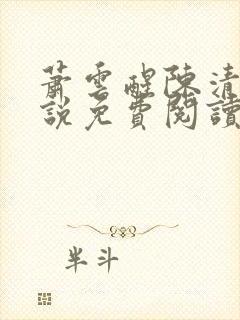 蕭雲醒陳清
說免費閱讀
半斗